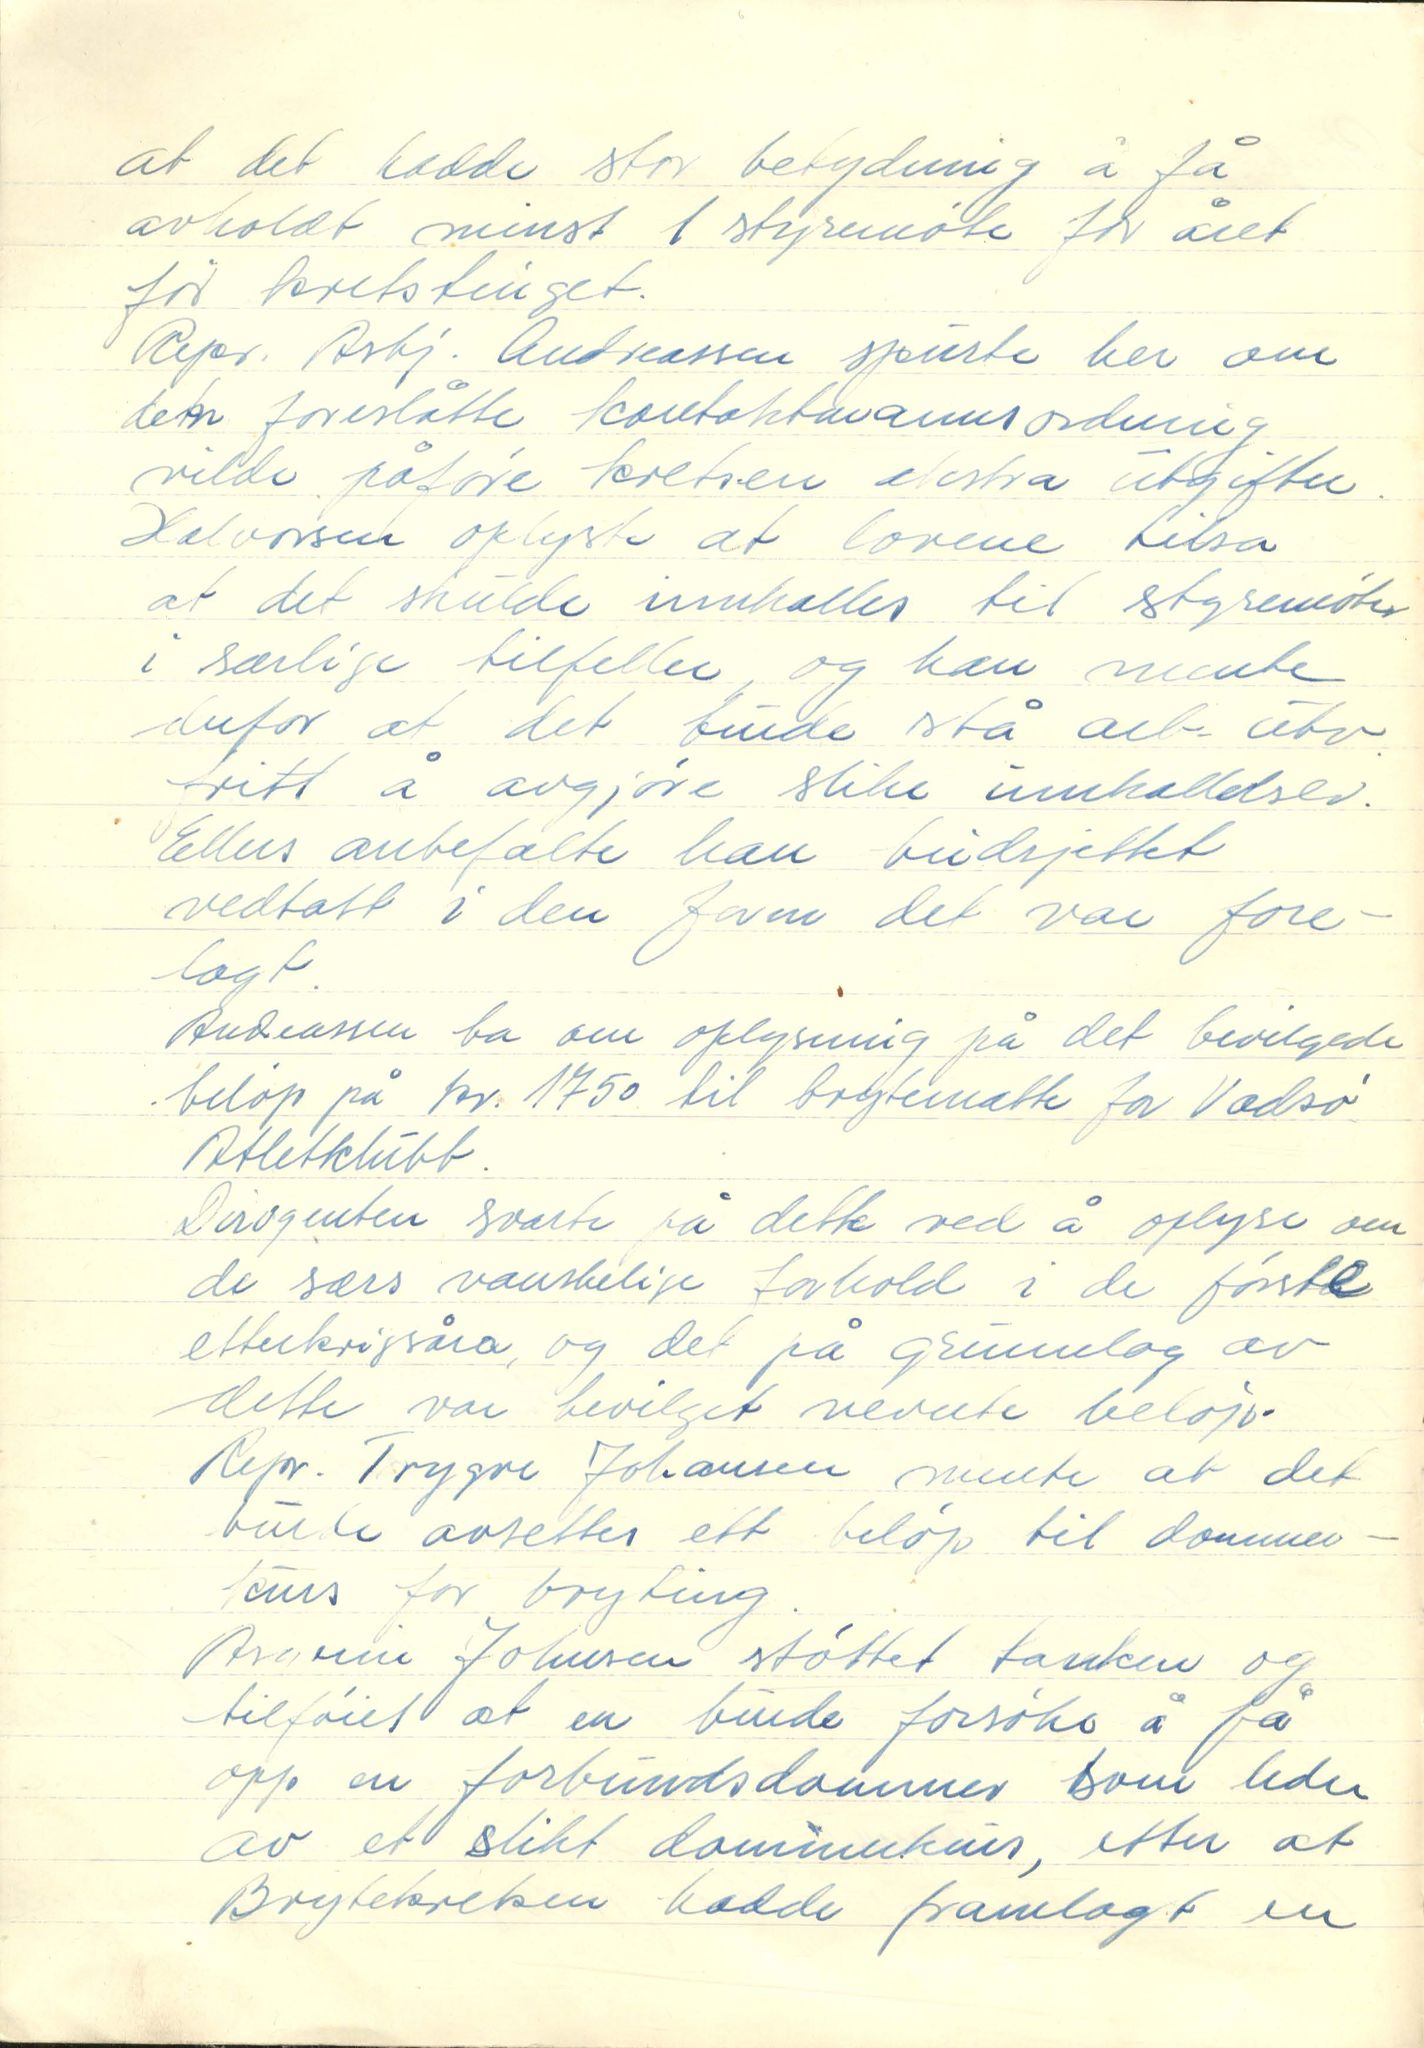 at det hadde stor betydning å få
avholdt minst 1 styremöte for året
för kretstinget.
Repr. Asbj. Andreassen spurte her om
den foreslåtte kontaktmannsordning
vilde påføre kretsen ekstra utgifter.
Halvorsen oplyste at lovene tilsa
at det skulde innkalles til styremöter
i særlige tilfeller, og han mente
derfor at det burde stå arb. utv.
fritt å avgjöre slike innkallelser.
Ellers anbefalte han budsjettet
vedtatt i den form det var fore-
lagt.
Andreassen ba om oplysning på det bevilgede
belöp på kr. 1750 til brytematte for Vadsö
Atletklubb.
Dirigenten svarte på dette ved å oplyse om
de særs vanskelige forhold i de förste
etterkrigsåra, og det på grunnlag av
dette var bevilget nevnte belöp.
Repr. Trygve Johansen mente at det
burde avsettes ett belöp til dommer-
kurs for bryting.
Johnsen stöttet tanken og
tilföiet at en burde forsöke å få
opp en forbundsdommer som leder
av et slikt dommerkurs, etter at
Brytekretsen hadde framlagt en